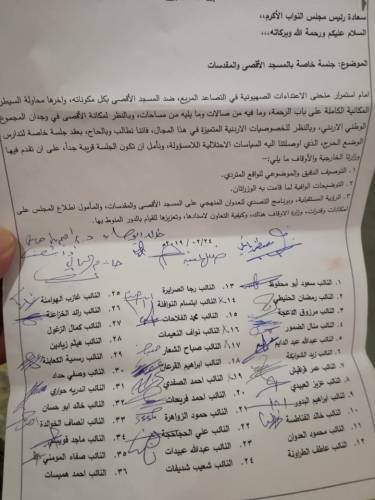 سعادة رئيس مجلس النواب الأكرم،،
السلام عليكم ورحمة الله وبركاته،،،
الموضوع: جلسة خاصة بالمسجد الأقصى والمقدسات
أمام استمرار منحنى الاعتداءات الصهيونية في التصاعد المريع، ضد المسجد الأقصى بكل مكوناته، وآخرها محاولة السيطرة
المكانية الكاملة على باب الرحمة، وما فيه من صالات وما يليه من مساحات، وبالنظر لمكانة الأقصى في وجدان المجموع
الوطني الأردني، وبالنظر للخصوصيات الأردنية المتميزة في هذا المجال، فاننا نطالب وبالحاح، بعقد جلسة خاصة لتدارس
الوضع الحرج، الذي أوصلتنا اليه السياسات الاحتلالية اللامسؤولة، ونأمل ان تكون الجلسة قريبة جداً، على ان تقدم فيها
وزارتا الخارجية والأوقاف ما يلي:-
١. التوصيف الدقيق والموضوعي للواقع المتردي.
٢. التوضيحات الوافية لما قامت به الوزارتان.
٣. الرؤية المستقبلية، وبرنامج التصدي للعدوان المنهجي على المسجد الأقصى والمقدسات، والمأمول اطلاع المجلس على
امكانات وقدرات، وزارة الأوقاف هناك، وكيفية التعاون لاسنادها، وتعزيزها للقيام بالدور المنوط بها.
٢٠١٩/٠٢/٢٤
١. النائب سعود أبو محفوظ
٢. النائب رمضان الحنيطي
٣. النائب مرزوق الدعجة
٤. النائب منال الضمور
٥. النائب عبدالله عبد الدايم
٦. النائب زيد الشوابكة
٧. النائب عمر قراقيش
٨. النائب عزيز العبيدي
٩. النائب ابراهيم البدور
١٠. النائب خالد الفناطسة
١١. النائب محمود العدوان
١٢. النائب عاطف الطراونة
١٣. النائب رجا الصرايرة
١٤. النائب ابتسام النوافلة
١٥. النائب محمد الفلاحات
١٦. النائب نواف النعيمات
١٧. النائب صباح الشعار
١٨. النائب ابراهيم القرعان
١٩. النائب احمد الصفدي
٢٠. النائب احمد فريحات
٢١. النائب حمود الزواهرة
٢٢. النائب علي الحجاحجة
٢٣. النائب عبدالله عبيدات
٢٤. النائب شعيب شديفات
٢٥. النائب غازي الهواملة
٢٦. النائب رائد الخزاعلة
٢٧. النائب كمال الزغول
٢٨. النائب هيثم زيادين
٢٩. النائب رسمية الكعابنة
٣٠. النائب وصفي حداد
٣١. النائب اندريه حواري
٣٢. النائب خالد ابو حسان
٣٣. النائب انصاف الخوالدة
٣٤. النائب ماجد قويسم
٣٥. النائب صفاء المومني
٣٦. النائب احمد هميسات